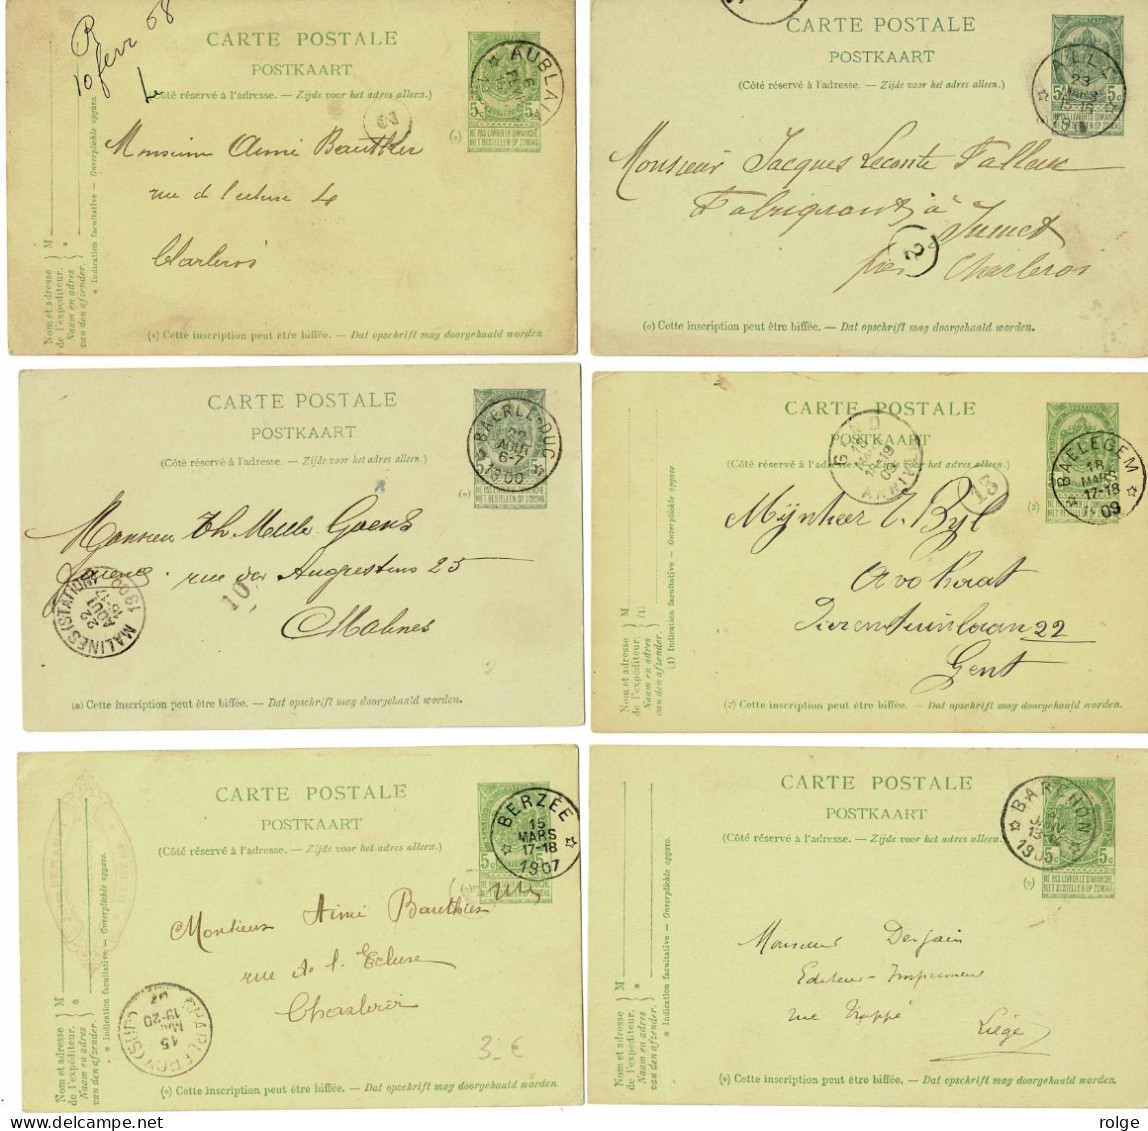 R
10 fevr 08
L
CARTE POSTALE
POSTKAART
(Côté réservé à l'adresse. — Zijde voor het adres alleen.)
AUBLAI
5c
NE PAS LIVRER LE DIMANCHE
NIET BESTELLEN OP ZONDAG
Monsieur Aimé Bauthier
rue de l'ecluse 4
Charleroi
Nom et adresse de l'expéditeur.
Naam en adres van den afzender.
M
* Indication facultative — Onverplichte opgave.
(*) Cette inscription peut être biffée. — Dat opschrift mag doorgehaald worden
CARTE POSTALE
POSTKAART
(Côté réservé à l'adresse. — Zijde voor het adres alleen.)
23
MARS
NE PAS LIVRER LE DIMANCHE
NIET BESTELLEN OP ZONDAG
Monsieur Jacques Leconte Falleux
Fabriquant à
Jumet
2
par Charleroi
(o) Cette inscription peut être biffée. — Dat opschrift mag doorgehaald worden.
CARTE POSTALE
POSTKAART
(Côté réservé à l'adresse. — Zijde voor het adres alleen.)
BAERLE-DUC
22
AOUT
6-7
1900
NE PAS LIVRER LE DIMANCHE
NIET BESTELLEN OP ZONDAG
rue des Augustins 25
Malines
10
MALINES (STATION)
22
AOUT
15-17
1900
(*) Cette inscription peut être biffée. — Dat opschrift mag doorgehaald worden.
CARTE POSTALE
POSTKAART
(Côté réservé à l'adresse. — Zijde voor het adres alleen.)
GAND
ARRIV
15
BAELEGEM
18
MARS
17-18
1909
Mijnheer E. Byl
Avokaat
22
Gent
Nom et adresse de l'expéditeur.
Naam en adres van den afzender.
M
(1)
(1) Indication facultative — Onverplichte opgave
(2) Cette inscription peut être biffée. — Dat opschrift mag doorgehaald worden.
CARTE POSTALE
POSTKAART
(Côté réservé à l'adresse. — Zijde voor het adres alleen.)
BERZÉE
15
MARS
17-18
1907
5c
NE PAS LIVRER LE DIMANCHE
NIET BESTELLEN OP ZONDAG
Monsieur Aimé Bauthier
rue de l'Ecluse
Charleroi
CHARLEROY (SUD)
15
19-20
07
3.- €
Nom et adresse de l'expéditeur.
Naam en adres van den afzender.
M
* Indication facultative — Onverplichte opgave.
(*) Cette inscription peut être biffée. — Dat opschrift mag doorgehaald worden.
CARTE POSTALE
POSTKAART
(Côté réservé à l'adresse. — Zijde voor het adres alleen.)
BARCHON
JANV
1905
5c
NE PAS LIVRER LE DIMANCHE
NIET BESTELLEN OP ZONDAG
Monsieur Desjain
Editeur-Imprimeur
rue Trappé
Liége
Nom et adresse de l'expéditeur.
Naam en adres van den afzender.
M
* Indication facultative — Onverplichte opgave.
(*) Cette inscription peut être biffée. — Dat opschrift mag doorgehaald worden.
rolge